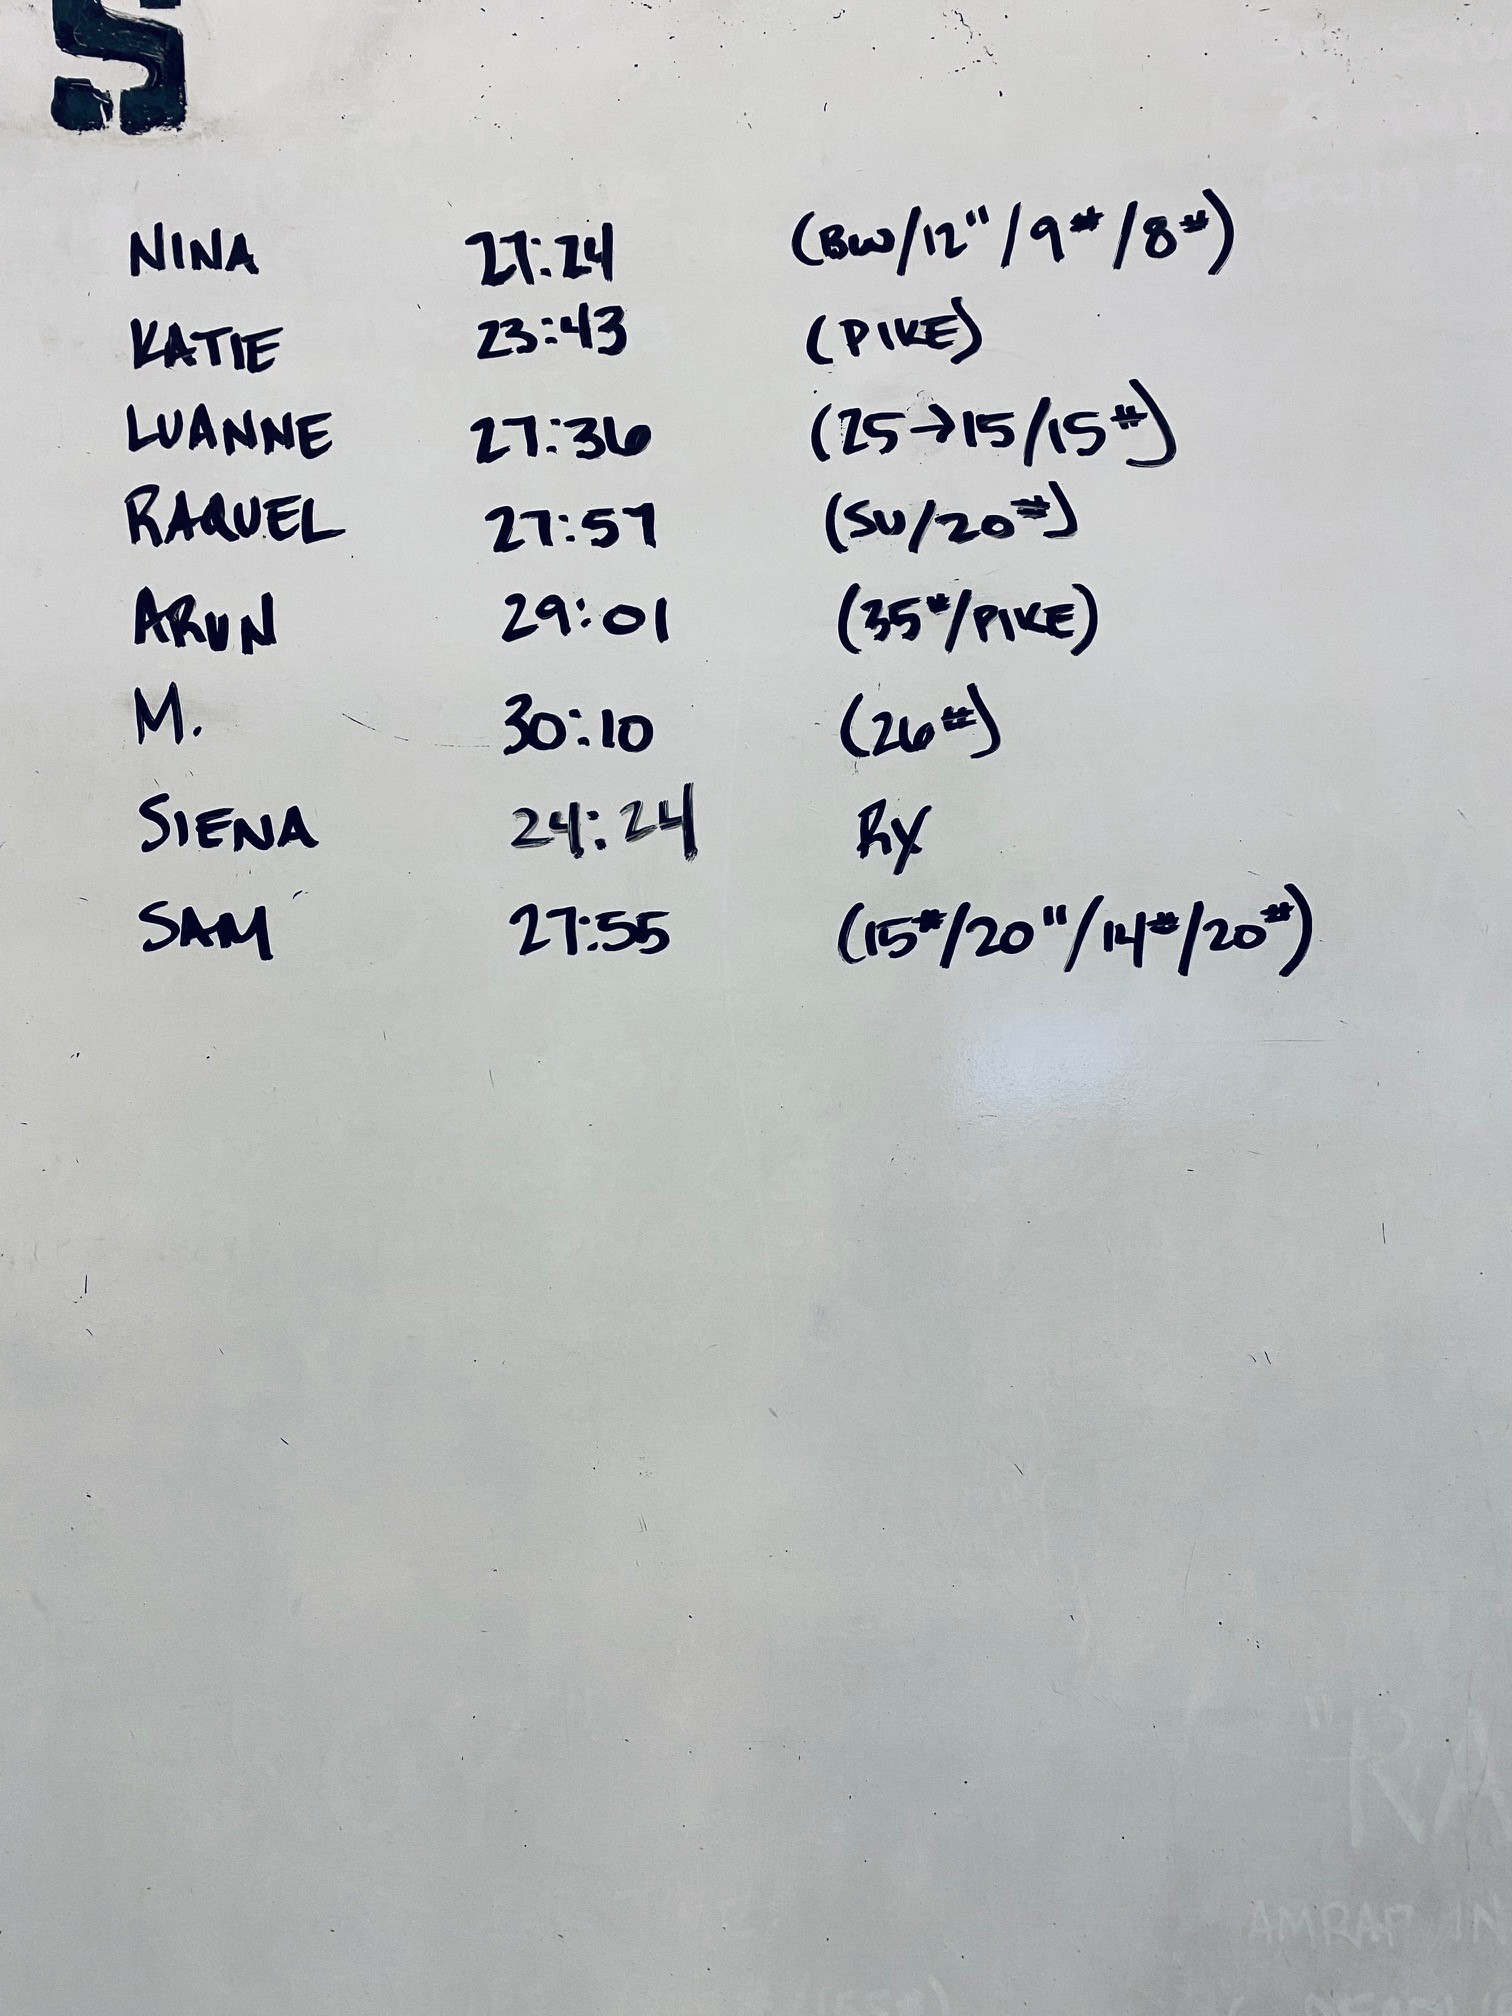 S
NINA 27:24 (BW/12"/9#/8#)
KATIE 23:43 (PIKE)
LUANNE 27:36 (25→15/15#)
RAQUEL 27:57 (SU/20#)
ARUN 29:01 (35#/PIKE)
M. 30:10 (26#)
SIENA 24:24 RX
SAM 27:55 (15#/20"/14#/20#)
"RA
AMRAP IN